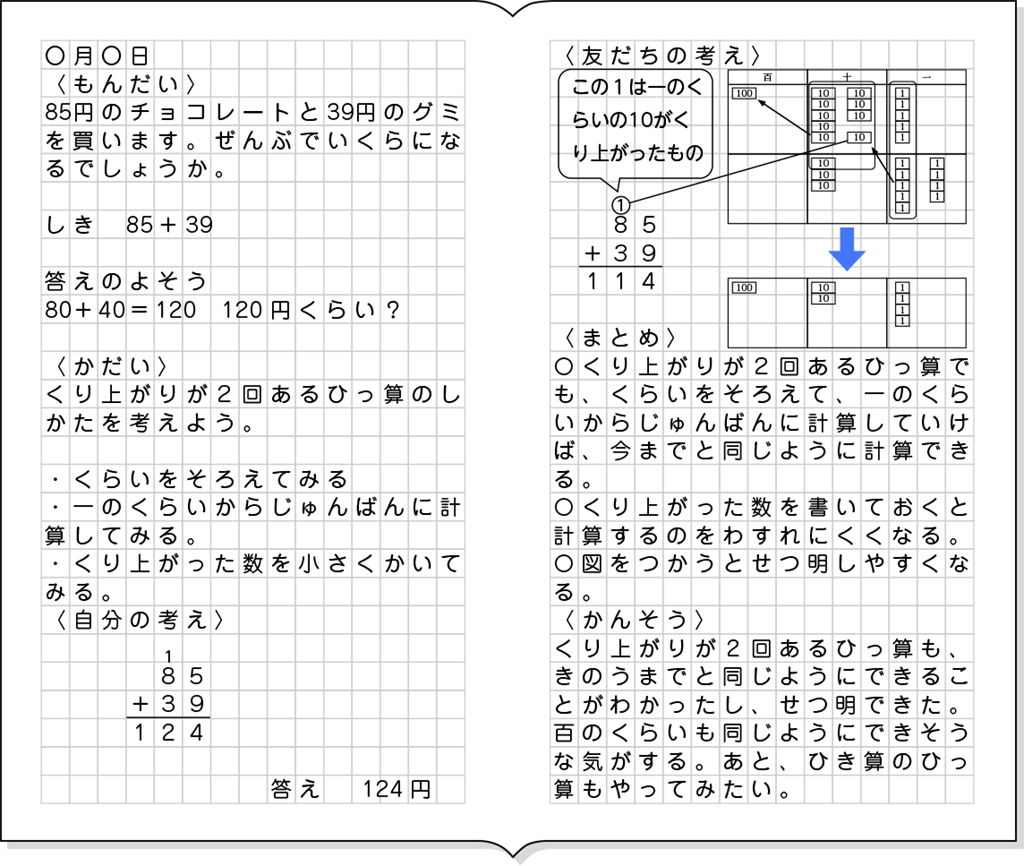 〇月〇日
〈もんだい〉
85円のチョコレートと39円のグミ
を買います。ぜんぶでいくらにな
るでしょうか。
しき 85+39
答えのよそう
80+40=120 120円くらい?
〈かだい〉
くり上がりが2回あるひっ算のし
かたを考えよう。
・くらいをそろえてみる
・一のくらいからじゅんばんに計
算してみる。
・くり上がった数を小さくかいて
みる。
〈自分の考え〉
1
85
+39
124
答え 124円
〈友だちの考え〉
この1は一のく
らいの10がく
り上がったもの
①
85
+39
114
百 十 一
100 10 10 1
10 10 1
10 10 1
10 1
10 10 1
10 1 1
10 1 1
10 1 1
1 1
1
100 10 1
10 1
1
1
〈まとめ〉
〇くり上がりが2回あるひっ算で
も、くらいをそろえて、一のくら
いからじゅんばんに計算していけ
ば、今までと同じように計算でき
る。
〇くり上がった数を書いておくと
計算するのをわすれにくくなる。
〇図をつかうとせつ明しやすくな
る。
〈かんそう〉
くり上がりが2回あるひっ算も、
きのうまでと同じようにできるこ
とがわかったし、せつ明できた。
百のくらいも同じようにできそう
な気がする。あと、ひき算のひっ
算もやってみたい。